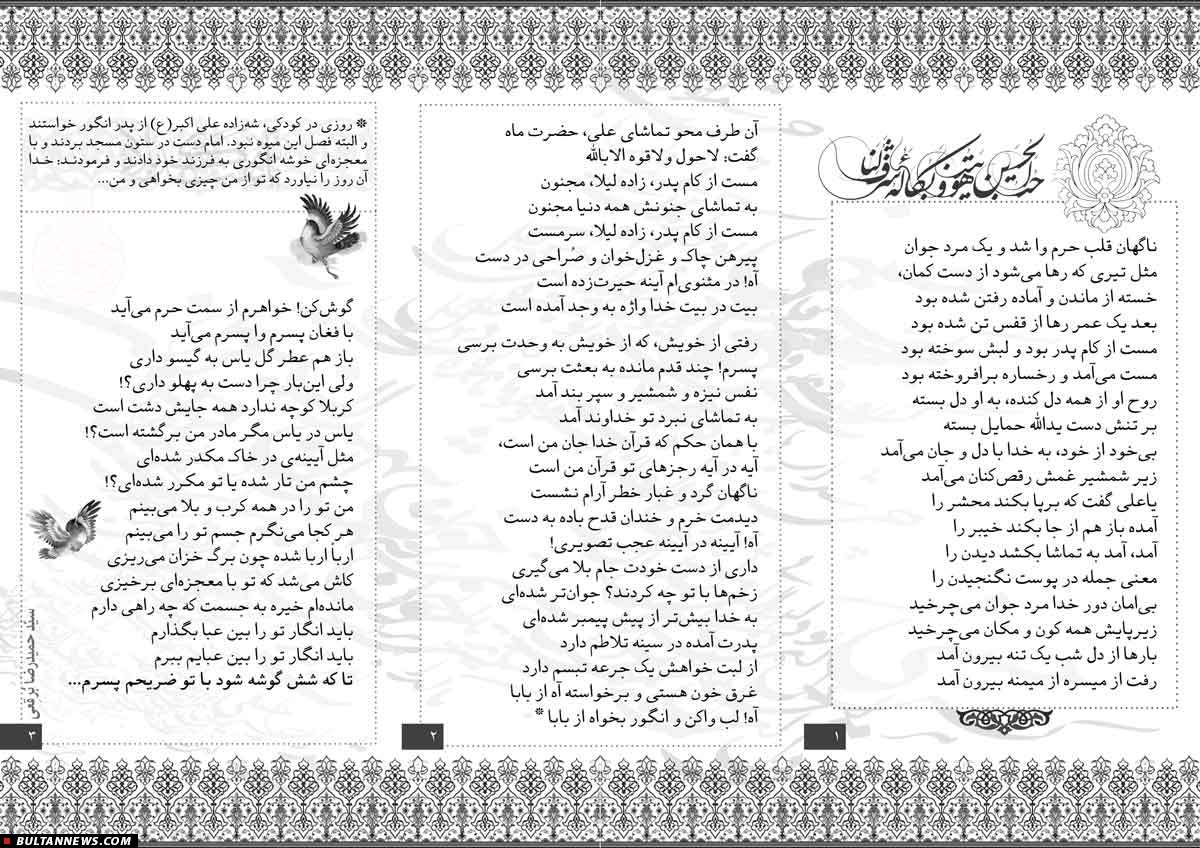 حب الحسین هویتنا و بکائه شرف لنا
ناگهان قلب حرم وا شد و یک مرد جوان
مثل تیری که رها می‌شود از دست کمان،
خسته از ماندن و آماده رفتن شده بود
بعد یک عمر رها از قفس تن شده بود
مست از کام پدر بود و لبش سوخته بود
مست می‌آمد و رخساره برافروخته بود
روح او از همه دل کنده، به او دل بسته
بر تنش دست یدالله حمایل بسته
بی‌خود از خود، به خدا با دل و جان می‌آمد
زیر شمشیر غمش رقص‌کنان می‌آمد
یاعلی گفت که برپا بکند محشر را
آمده باز هم از جا بکند خیبر را
آمد، آمد به تماشا بکشد دیدن را
معنی جمله در پوست نگنجیدن را
بی‌امان دور خدا مرد جوان می‌چرخید
زیرپایش همه کون و مکان می‌چرخید
بارها از دل شب یک تنه بیرون آمد
رفت از میسره از میمنه بیرون آمد
۱
آن طرف محو تماشای علی، حضرت ماه
گفت: لاحول ولاقوه الابالله
مست از کام پدر، زاده لیلا، مجنون
به تماشای جنونش همه دنیا مجنون
مست از کام پدر، زاده لیلا، سرمست
پیرهن چاک و غزل‌خوان و صُراحی در دست
آه! در مثنوی‌ام آینه حیرت‌زده است
بیت در بیت خدا واژه به وجد آمده است
رفتی از خویش، که از خویش به وحدت برسی
پسرم! چند قدم مانده به بعثت برسی
نفس نیزه و شمشیر و سپر بند آمد
به تماشای نبرد تو خداوند آمد
با همان حکم که قرآن خدا جان من است،
آیه در آیه رجزهای تو قرآن من است
ناگهان گرد و غبار خطر آرام نشست
دیدمت خرم و خندان قدح باده به دست
آه! آیینه در آیینه عجب تصویری!
داری از دست خودت جام بلا می‌گیری
زخم‌ها با تو چه کردند؟ جوان‌تر شده‌ای
به خدا بیش‌تر از پیش پیمبر شده‌ای
پدرت آمده در سینه تلاطم دارد
از لبت خواهش یک جرعه تبسم دارد
غرق خون هستی و برخواسته آه از بابا
آه! لب واکن و انگور بخواه از بابا *
۲
* روزی در کودکی، شه‌زاده علی اکبر(ع) از پدر انگور خواستند
و البته فصل این میوه نبود. امام دست در ستون مسجد بردند و با
معجزه‌ای خوشه انگوری به فرزند خود دادند و فرمودند: خدا
آن روز را نیاورد که تو از من چیزی بخواهی و من...
گوش‌کن! خواهرم از سمت حرم می‌آید
با فغان پسرم وا پسرم می‌آید
باز هم عطر گل یاس به گیسو داری
ولی این‌بار چرا دست به پهلو داری؟!
کربلا کوچه ندارد همه جایش دشت است
یاس در یاس مگر مادر من برگشته است؟!
مثل آیینه‌ی در خاک مکدر شده‌ای
چشم من تار شده یا تو مکرر شده‌ای؟!
من تو را در همه کرب و بلا می‌بینم
هر کجا می‌نگرم جسم تو را می‌بینم
ارباً اربا شده چون برگ خزان می‌ریزی
کاش می‌شد که تو با معجزه‌ای برخیزی
مانده‌ام خیره به جسمت که چه راهی دارم
باید انگار تو را بین عبا بگذارم
باید انگار تو را بین عبایم ببرم
تا که شش گوشه شود با تو ضریحم پسرم...
سیّد حمیدرضا بُرقعی
۳
BULTANNEWS.COM